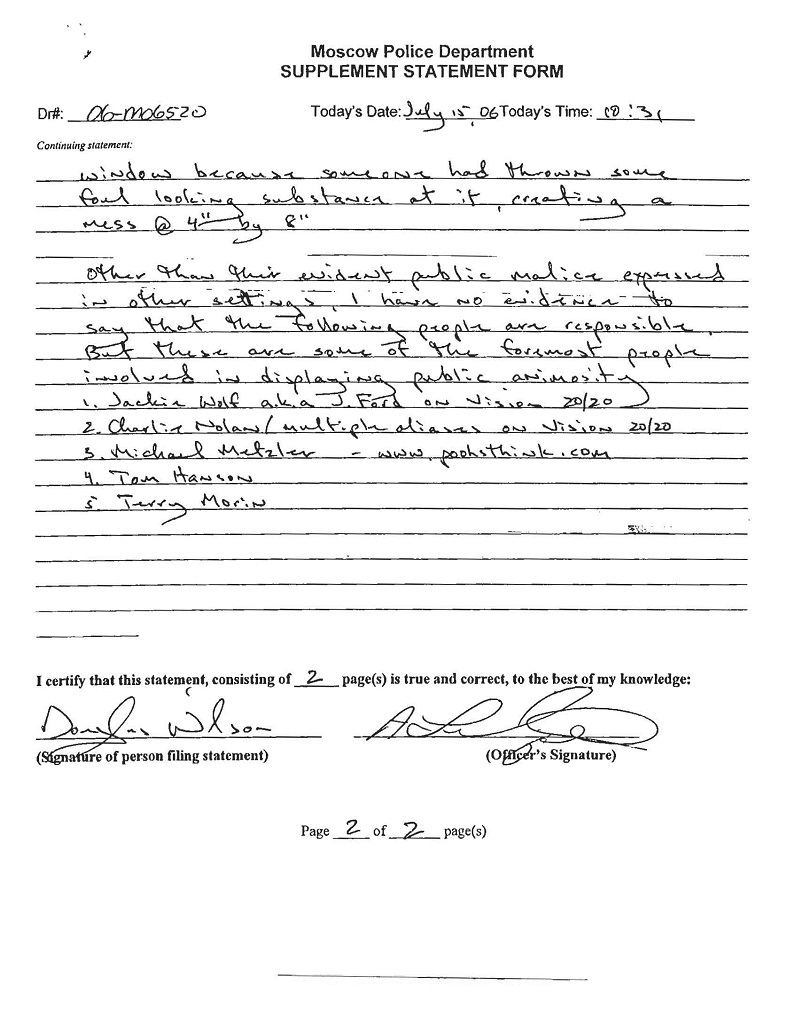 Moscow Police Department
SUPPLEMENT STATEMENT FORM
Dr#: 06-M06520 Today's Date: July 15, 06 Today's Time: :31
Continuing statement:
window because someone had thrown some
foul looking substance at it, creating a
mess @ 4" by 8"
Other than their evident public malice expressed
in other settings, I have no evidence to
say that the following people are responsible.
But these are some of the foremost people
involved in displaying public animosity
1. Jackie Wolf a.k.a J. Ford on Vision 20/20
2. Charlie Nolan/multiple aliases on Vision 20/20
3. Michael Metzler - www.poohsthink.com
4. Tom Hanson
5. Terry Morin
I certify that this statement, consisting of 2 page(s) is true and correct, to the best of my knowledge:
Douglas Wilson
(Signature of person filing statement) (Officer's Signature)
Page 2 of 2 page(s)